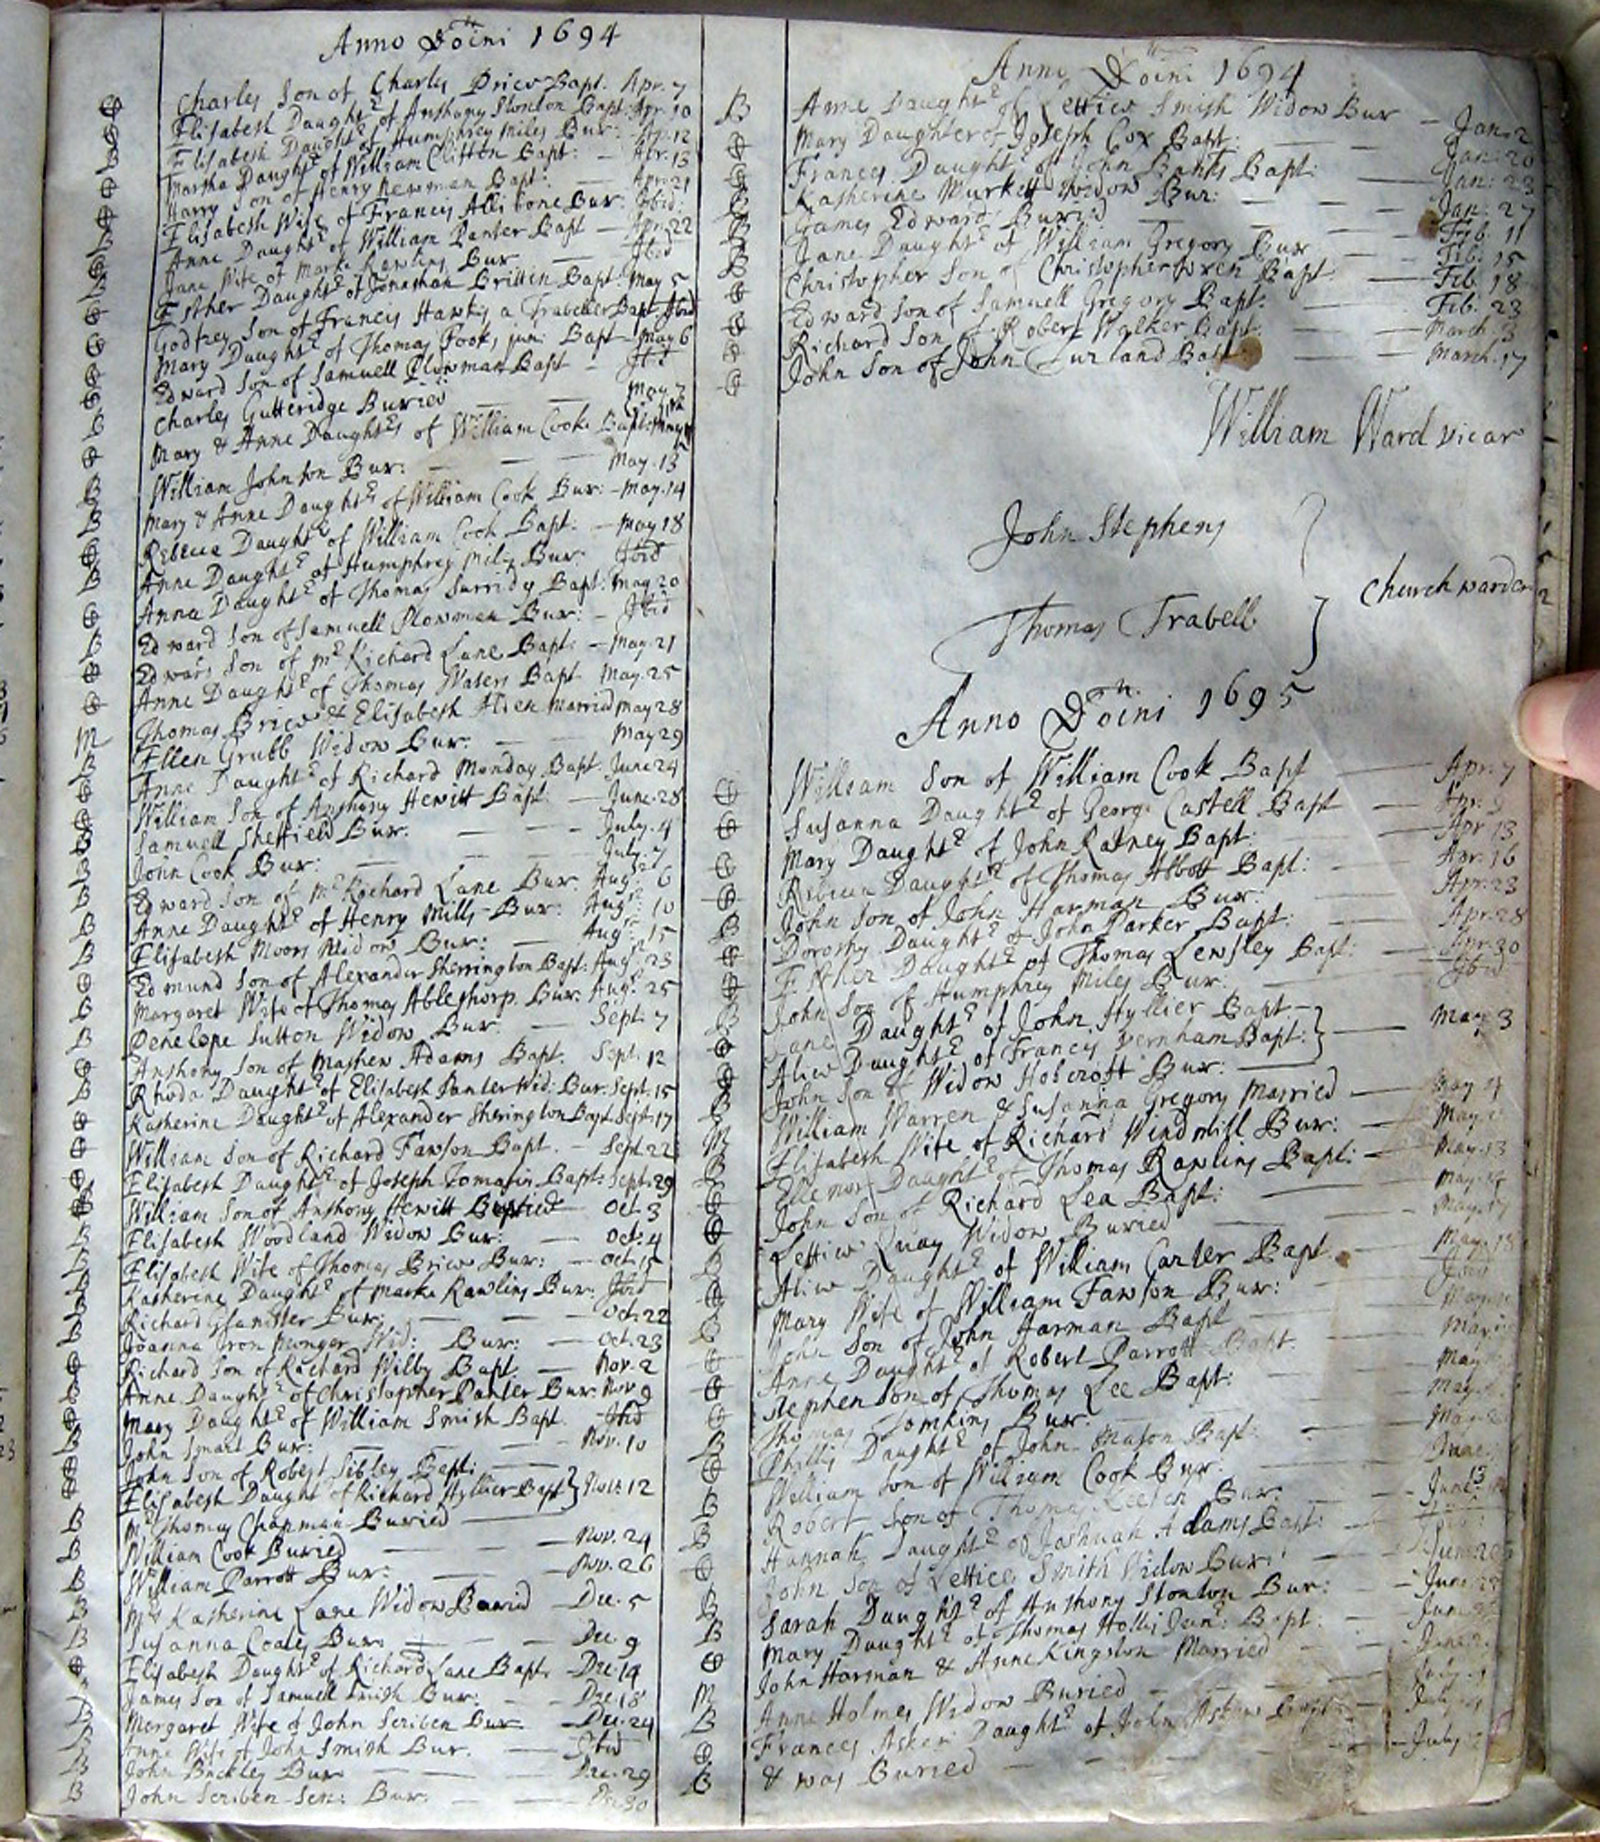 Anno Doini 1694
Charles Son of Charles Brice Bapt. Apr. 7
Elisabeth Daught.r of Anthony Stonton Bapt. Apr. 10
Elisabeth Daught.r of Humphrey Miles Bur: Apr. 12
Martha Daught.r of William Clifton Bapt: — Apr. 13
Harry Son of Henry Newman Bapt: — Apr. 21
Elisabeth Wife of Francis Allibone Bur: Ibid:
Anne Daught.r of William Panter Bapt — Apr. 22
Jane Wife of Marke Rawlins Bur — Ibid
Esther Daught.r of Jonathan Britten Bapt. May 5
Godfrey Son of Francis Hawkis a Traveller Bapt. Ibid
Mary Daught.r of Thomas Cooks jun: Bapt — May 6
Edward Son of Samuell Plowman Bapt — Ibid
Charles Gutteridge Buried — May 7
Mary & Anne Daught.rs of William Cooke Bapt:
William Johnson Bur: — — — May. 13
Mary & Anne Daught.rs of William Cook Bur: — May. 14
Rebecca Daught.r of William Cook Bapt: — May 18
Anne Daught.r of Humphrey Miles Bur: Ibid
Anna Daught.r of Thomas Surridg Bapt: May 20
Edward Son of Samuell Plowman Bur: — Ibid
Edward Son of Mr Richard Lane Bapt: — May. 21
Anne Daught.r of Thomas Waters Bapt May. 25
Thomas Brice & Elisabeth Allen married May 28
Ellen Grubb Widow Bur: — May 29
Anne Daught.r of Richard Monday Bapt. June 24
William Son of Anthony Hewitt Bapt: — June. 28
Samuell Sheffield Bur: — — July. 4
John Cook Bur: — — July. 7
Edward Son of Mr Richard Lane Bur: Augst 6
Anne Daught.r of Henry Mills Bur: Augst 10
Elisabeth Moors Widow Bur: — Augst 15
Edmund Son of Alexander Sherrington Bapt: Augst 23
Margaret Wife of Thomas Ablethorp. Bur. Augst 25
Penelope Sutton Widow Bur: — Sept. 7
Anthony Son of Mathew Adams Bapt. Sept. 12
Rhoda Daught.r of Elisabeth Panter Wid: Bur: Sept. 15
Katherine Daught.r of Alexander Sherington Bapt Sept. 17
William Son of Richard Fawson Bapt. — Sept. 22
Elisabeth Daught.r of Joseph Tomasin Bapt: Sept. 29
William Son of Anthony Hewitt — Oct. 3
Elisabeth Woodland Widow Bur: — Oct: 4
Elisabeth Wife of Thomas Brice Bur: — Oct. 15
Katherine Daught.r of Marke Rawlins Bur: Ibid
Richard Bur: — Oct. 22
Joanna Iron monger Wid: Bur: — Oct. 23
Richard Son of Richard Wilby Bapt. — Nov. 2
Anne Daught.r of Christopher Panter Bur: Nov 9
Mary Daught.r of William Smith Bapt. Ibid
John Smart Bur: — — Nov. 10
John Son of Robert Sibley Bapt: —
Elisabeth Daught.r of Richard Hyllier Bapt } Nov: 12
Mr Thomas Chapman Buried —
William Cook Buried — — Nov. 24
William Parrott Bur: — Nov. 26
Mrs Katherine Lane Widow Buried — Dec. 5
Susanna Coales Bur: — — Dec. 9
Elisabeth Daught.r of Richard Lane Bapt. — Dec. 14
James Son of Samuell Smith Bur: — Dec. 18
Margaret Wife of John Scriben Bur — Dec. 24
Anne Wife of John Smith Bur. — Ibid
John Buckley Bur — — Dec. 29
John Scriben Sen: Bur: — — Dec. 30
Anno Doini 1694
Anne Daught.r of Lettice Smith Widow Bur — Jan. 2
Mary Daughter of Joseph Cox Bapt: — Jan. 20
Frances Daught.r of John Banks Bapt: — Jan: 23
Katherine Murkett Widow Bur: — Jan: 27
James Edwards Buried — Feb. 11
Jane Daught.r of William Gregory Bur — Feb. 15
Christopher Son of Christopher Wren Bapt — Feb. 18
Edward Son of Samuell Gregory Bapt: — Feb. 23
Richard Son of Robert Walker Bapt. — March. 3
John Son of John Curland Bapt — March. 17
William Ward vicar
John Stephens
Thomas Trabell } Churchwarden
Anno Doini 1695
William Son of William Cook Bapt — Apr. 7
Susanna Daught.r of George Castell Bapt — Apr.
Mary Daught.r of John Ratney Bapt. Apr 13
Rebecca Daught.r of Thomas Abbott Bapt: — Apr. 16
John Son of John Harman Bur: Apr. 23
Dorothy Daught.r of John Parker Bapt: Apr. 28
Esther Daught.r of Thomas Lewsley Bapt: Apr. 30
John Son of Humphrey Miles Bur: Ibid
Jane Daught.r of John Hyllier Bapt —
Alice Daught.r of Francis Vernham Bapt: } — May 3
John Son of Widow Holcroft Bur: —
William Warren & Susanna Gregory Married — May
Elisabeth Wife of Richard Windmill Bur: — May
Ellenor Daught.r of Thomas Rawlins Bapt: — May. 13
John Son of Richard Lea Bapt: — May.
Lettice Quay Widow Buried — May. 17
Alice Daught.r of William Carter Bapt — May. 18
Mary Wife of William Fawson Bur: Ibid
John Son of John Harman Bapt — May
Anne Daught.r of Robert Parrott Bapt. May
Stephen Son of Thomas Lee Bapt: — May
Thomas Tomkins Bur: — May
Phillis Daught.r of John Mason Bapt: — May
William Son of William Cook Bur: June
Robert Son of Thomas Keeten Bur: June 13
Hannah Daught.r of Joshuah Adams Bapt:
John Son of Lettice Smith Widow Bur: June
Sarah Daught.r of Anthony Stonton Bur: — June
Mary Daught.r of Thomas Hollis Jun: Bapt: June
John Harman & Anne Kingston Married — June
Anne Holmes Widow Buried — July
Frances Asken Daught.r of John Bapt — July
& was Buried — — July